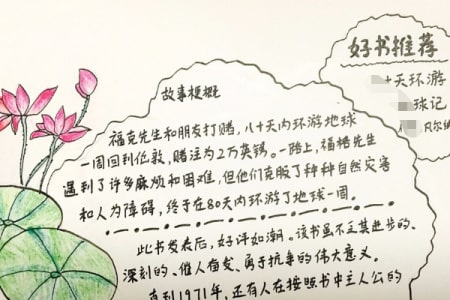 好书推荐
十天环游
球记
凡尔纳
故事梗概
福克先生和朋友打赌，八十天内环游地球
一周回到伦敦，赌注为2万英镑。一路上，福格先生
遇到了许多麻烦和困难，但他们克服了种种自然灾害
和人为障碍，终于在80天内环游了地球一周。
此书发表后，好评如潮。该书虽不乏其进步的、
深刻的、催人奋发、勇于抗争的伟大意义。
直到1971年，还有人在按照书中主人公的